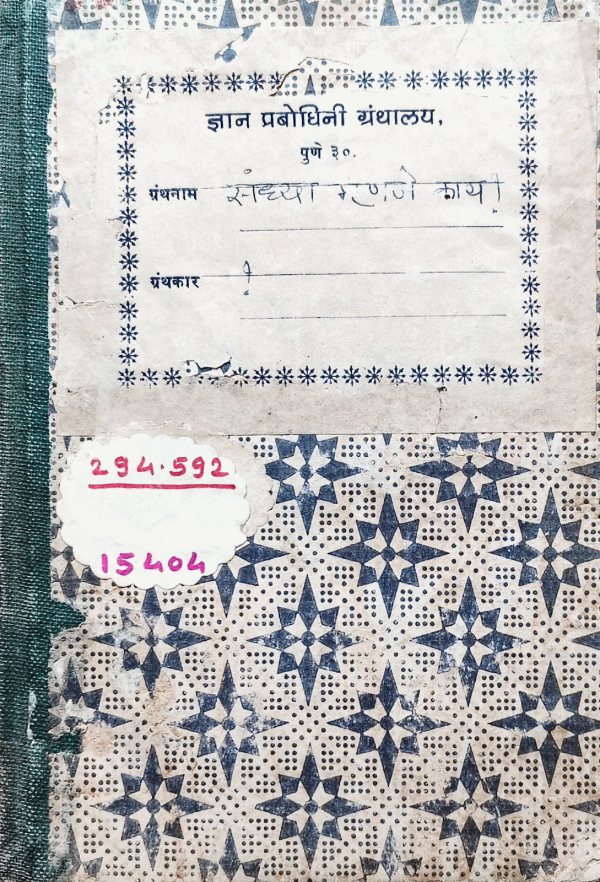 ज्ञान प्रबोधिनी ग्रंथालय,
पुणे ३०.
ग्रंथनाम संध्या म्हणजे काय!
ग्रंथकार ?
294.592
15404